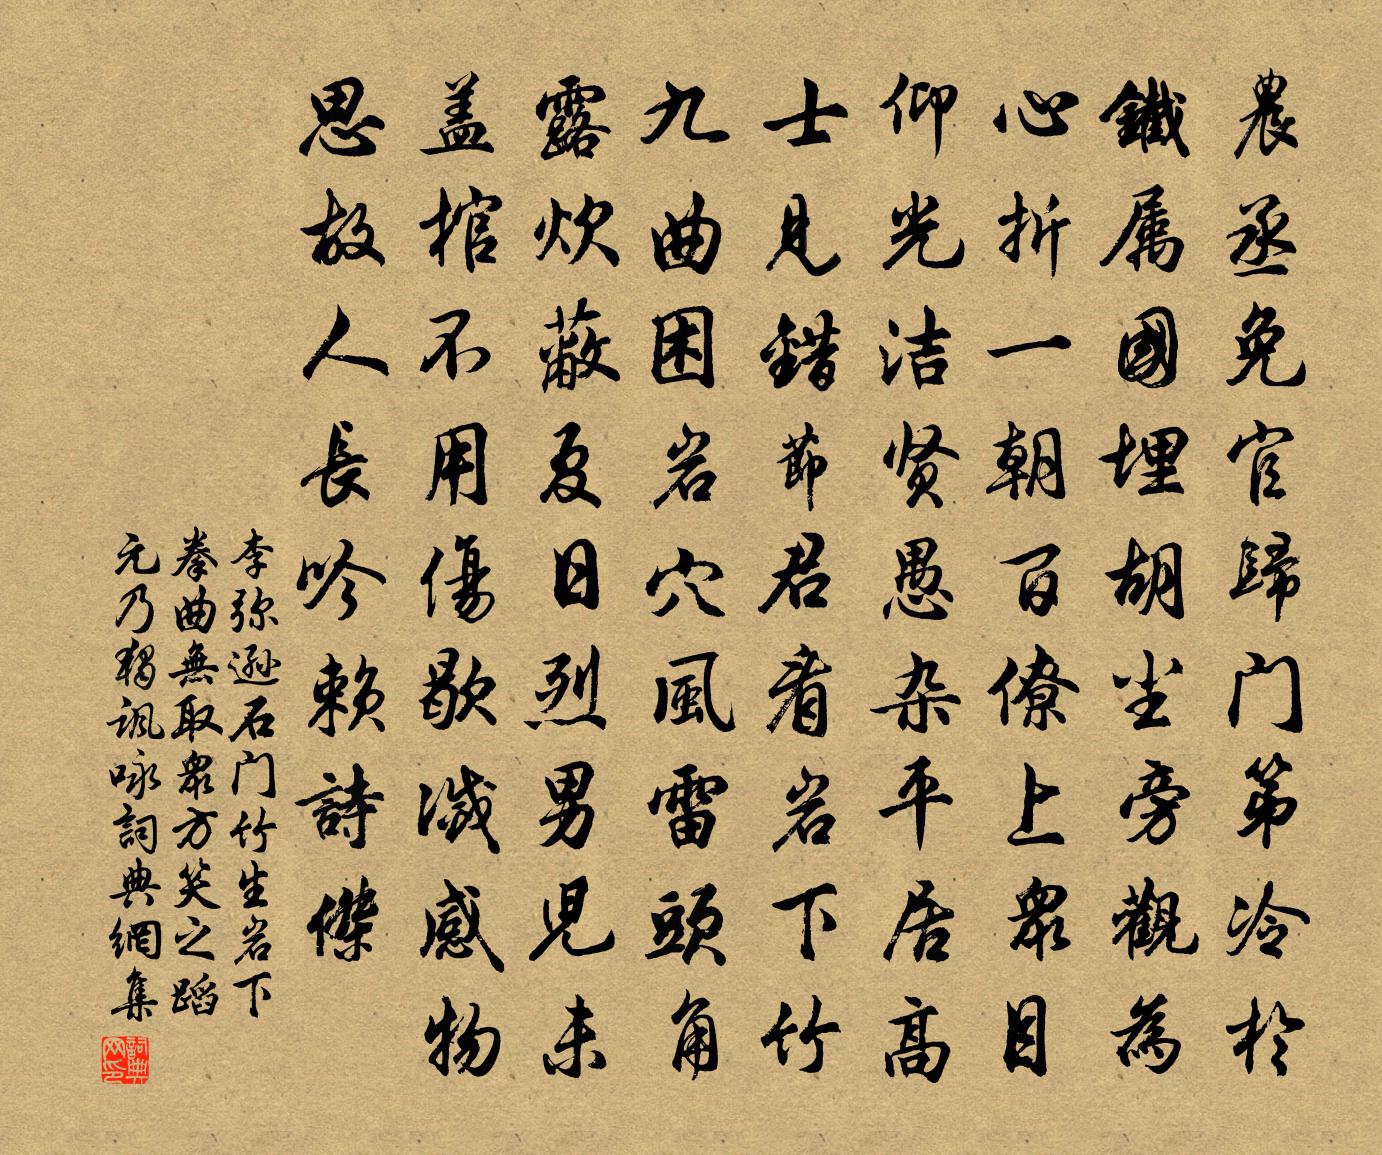 農丞免官歸门第冷於
鐵厲國埋胡尘旁觀為
心折一朝百僚上眾目
仰光洁贤愚杂平居高
士見錯節君看岩下竹
九曲困岩穴風雷頭角
露炊蔽夏日烈男児未
盖棺不用傷歇滅感物
思故人長吟賴詩傑
李弥遜石门竹生岩下
拳曲無取眾方笑之蹈
元乃獨諷咏詞典網集
詞典网印